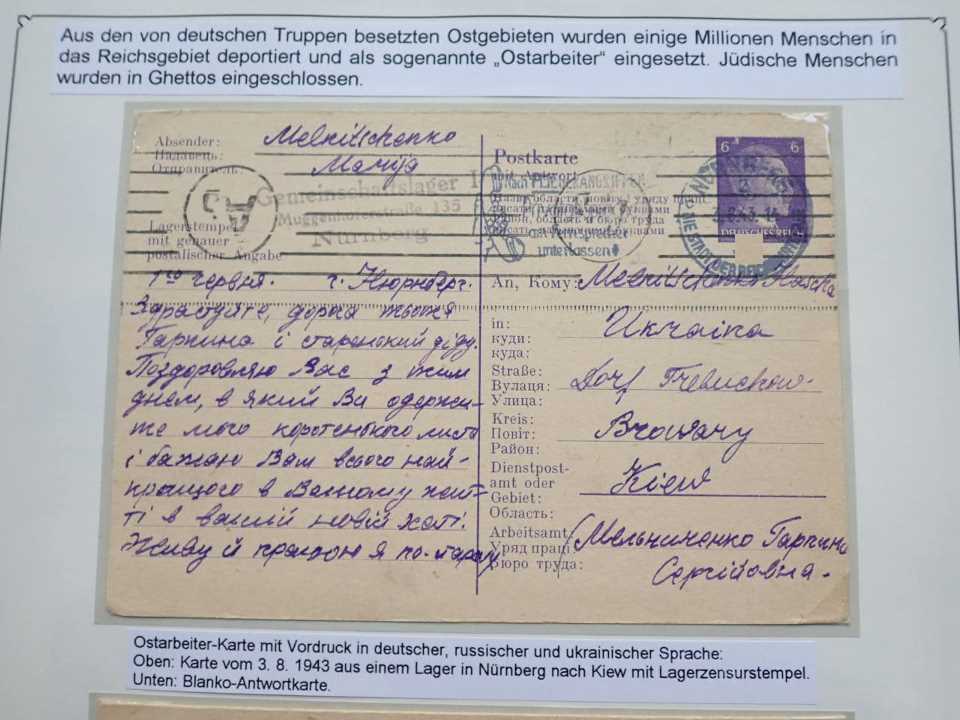 Aus den von deutschen Truppen besetzten Ostgebieten wurden einige Millionen Menschen in
das Reichsgebiet deportiert und als sogenannte „Ostarbeiter“ eingesetzt. Jüdische Menschen
wurden in Ghettos eingeschlossen.
Absender: Melnitschenko
Надавець: Marija
Отправитель:
Gemeinschaftslager I
Muggenhoferstraße 135
Nürnberg
Lagerstempel
mit genauer
postalischer Angabe
Postkarte
mit Antwort
unterlassen
6 6
DEUTSCHES REICH
NÜRNBERG
1го червня. г. Нюрнберг.
Здрастуйте, дорога тьотя
Гарпина і старенький діду.
Поздоровляю Вас з тим
днем, в який Ви одержи-
те мого коротенького листа
і бажаю Вам всього най-
кращого в Вашому жит-
ті в вашій новій хаті.
Живу й працюю я по-старому
An, Кому: Melnitschenko
in: Ukraina
куди:
куда:
Straße: Dorf Trebuchow
Вулаця:
Улица:
Kreis: Browary
Повіт:
Район:
Dienstpost-
amt oder Kiew
Gebiet:
Область:
Arbeitsamt: Мельниченко Гарпина
Уряд праці
Бюро труда: Сергійовна.
Ostarbeiter-Karte mit Vordruck in deutscher, russischer und ukrainischer Sprache:
Oben: Karte vom 3. 8. 1943 aus einem Lager in Nürnberg nach Kiew mit Lagerzensurstempel.
Unten: Blanko-Antwortkarte.